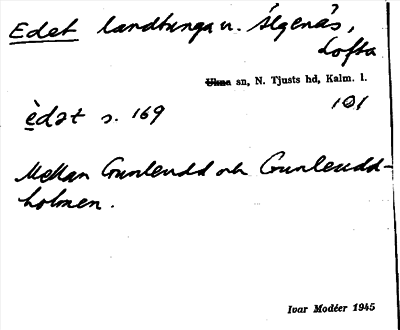 Edet landtunga u. Älgenäs,
Lofta
Ukna sn, N. Tjusts hd, Kalm. l.
èdət s. 169 101
Mellan Gunleudd och Gunleudd-
holmen.
Ivar Modéer 1945